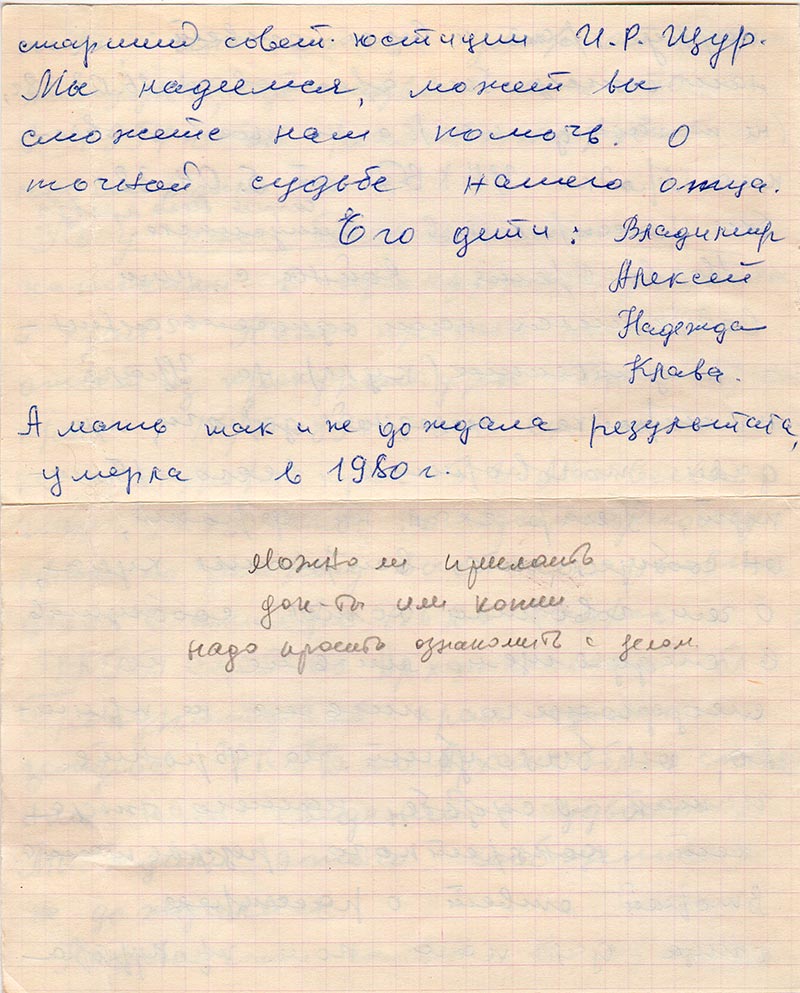 старший совет. юстиции И. Р. Щур.
Мы надеемся, может вы
сможете нам помочь. О
точной судьбе нашего отца.
Его дети: Владимир
Алексей
Надежда
Клава.
А мать так и не дождала результата,
умерла в 1980 г.
Можно ли прислать
док-ты или копии
надо просить ознакомить с делом